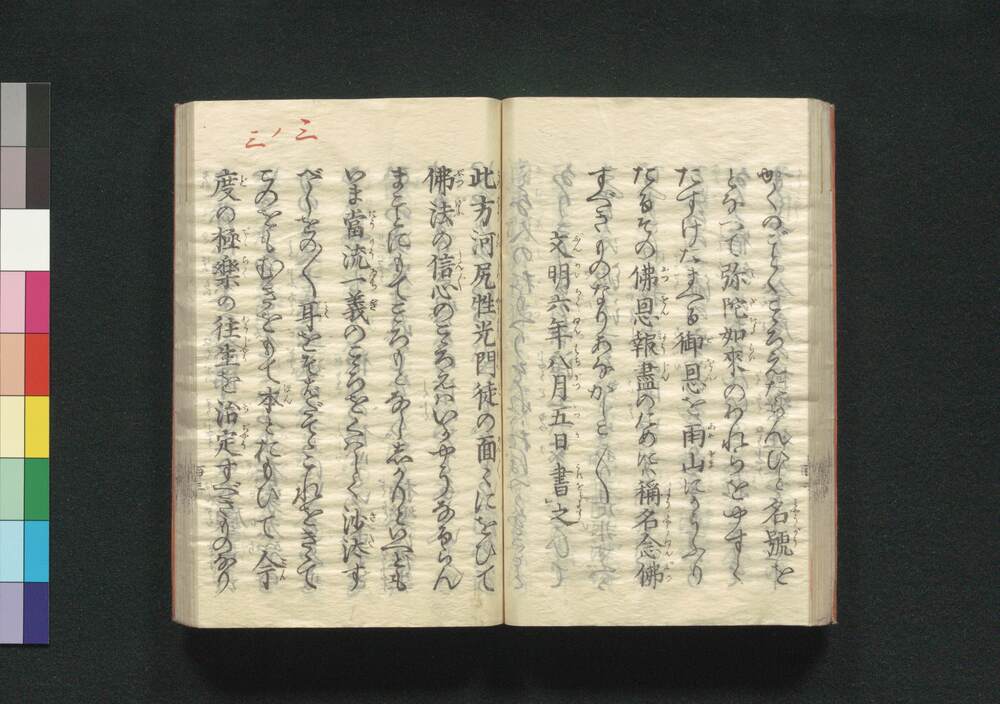 かくのごとくこゝろえたらんひと名號を
となへて弥陀如來のわれらをやすく
たすけたまへる御恩を雨山にかうふり
たるその佛恩報盡のためには稱名念佛
すべきものなりあなかしこ〳〵
文明六年八月五日書之
三ノ三
此方河尻性光門徒の面々にをひて
佛法の信心のこゝろえはいかやうなるらん
まことにもてこゝろもとなししかりといへども
いま當流一義のこゝろをくはしく沙汰す
べしをの〳〵耳をそばだてゝこれをきゝて
このをもむきをもて本とおもひて今
度の極樂の往生を治定すべきものなり